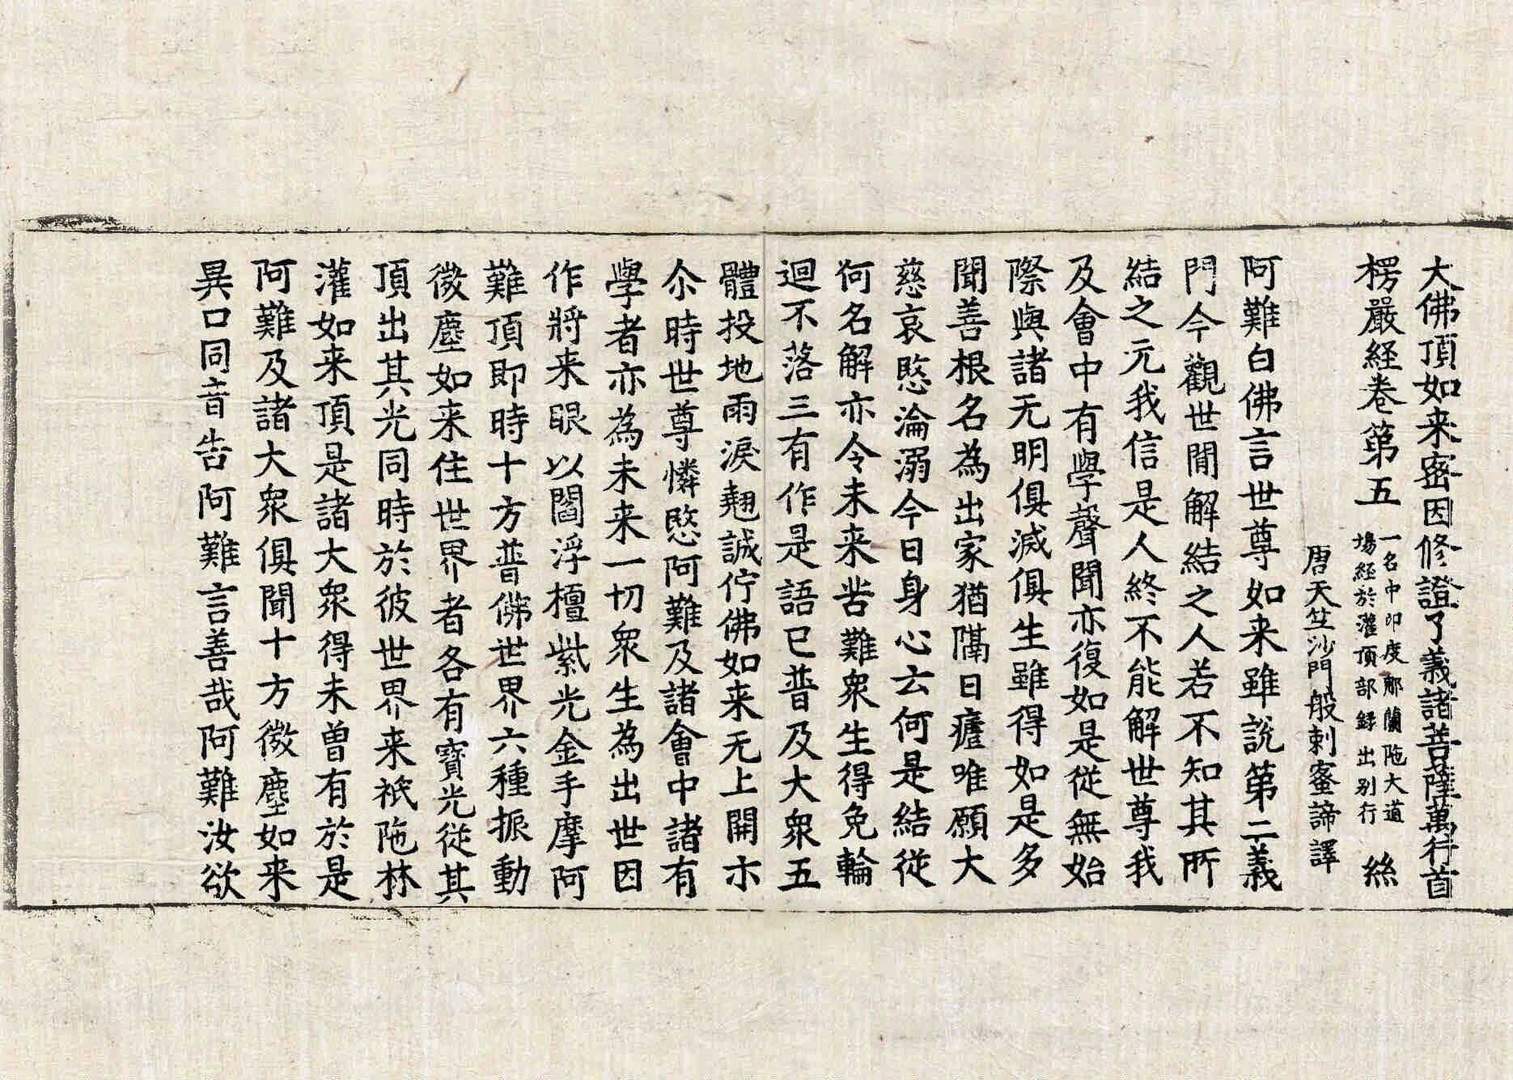 大佛頂如来密因修證了義諸菩薩萬行首
楞嚴経卷第五 一名中印度那蘭陁大道 場経於灌頂部録出别行 絲
唐天竺沙門般剌蜜諦譯
阿難白佛言世尊如来雖說第二義
門今觀世間解結之人若不知其所
結之元我信是人終不能解世尊我
及會中有學聲聞亦復如是従無始
際與諸无明俱滅俱生雖得如是多
聞善根名為出家猶隔日瘧唯願大
慈哀愍淪溺今日身心云何是結従
何名解亦令未来苦難衆生得免輪
迴不落三有作是語已普及大衆五
體投地雨淚翹誠佇佛如来无上開示
尒時世尊憐愍阿難及諸會中諸有
學者亦為未来一切衆生為出世因
作將来眼以閻浮檀紫光金手摩阿
難頂即時十方普佛世界六種振動
微塵如来住世界者各有寶光從其
頂出其光同時於彼世界来祇陁林
灌如来頂是諸大衆得未曽有於是
阿難及諸大衆俱聞十方微塵如来
異口同音告阿難言善哉阿難汝欲